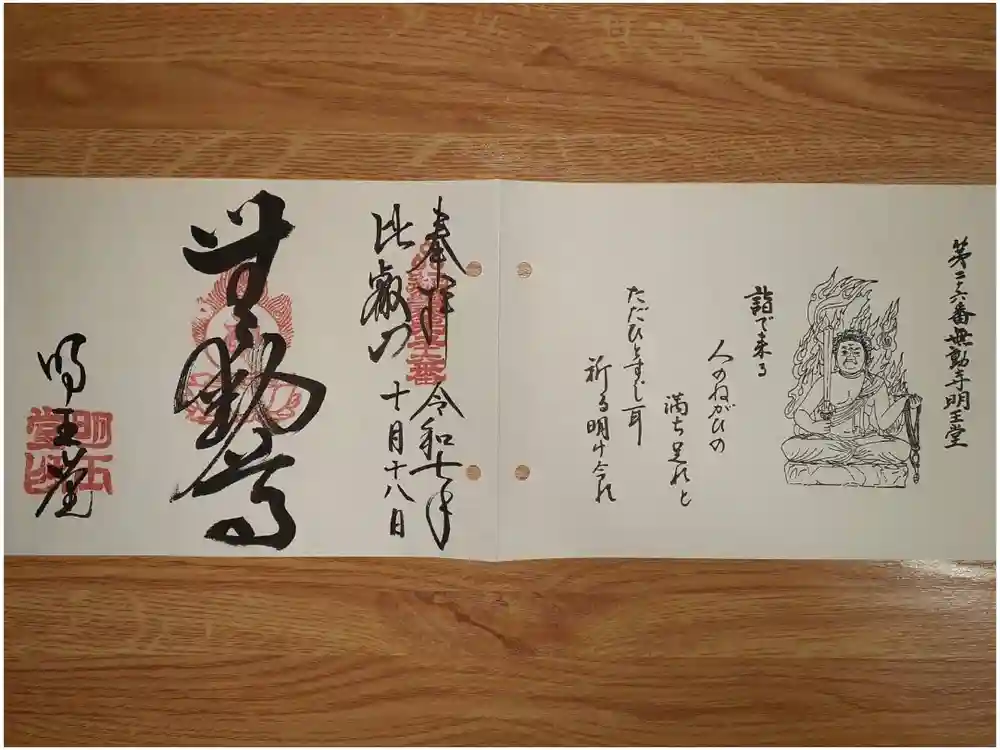 第二十六番無動寺明王堂
詣で来る
人のねがひの
満ち足れと
ただひとすじ耳
祈る明け今れ
奉拝
令和七年
比叡山
十月十八日
無動尊
明王堂
明王堂印